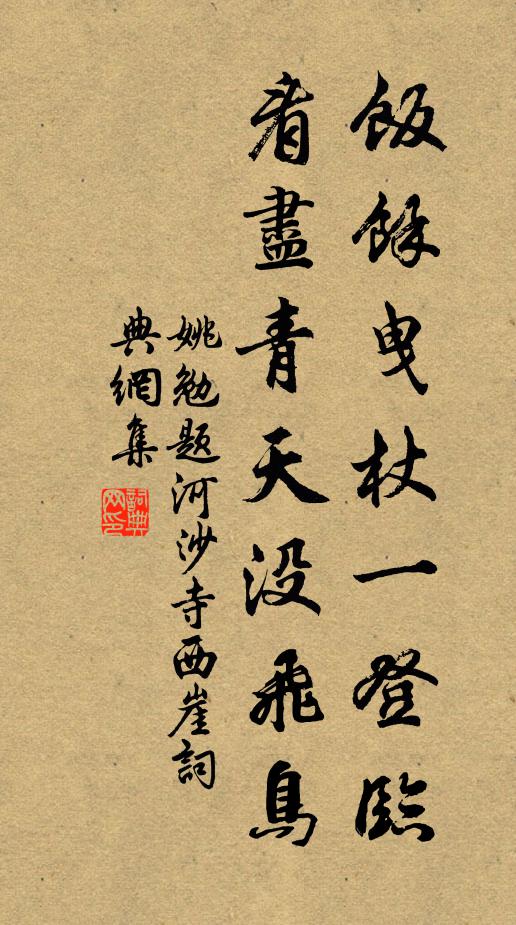 飯餘曳杖一登臨
看盡青天没飛鳥
姚勉題河沙寺西崖詞
典網集
詞典網印